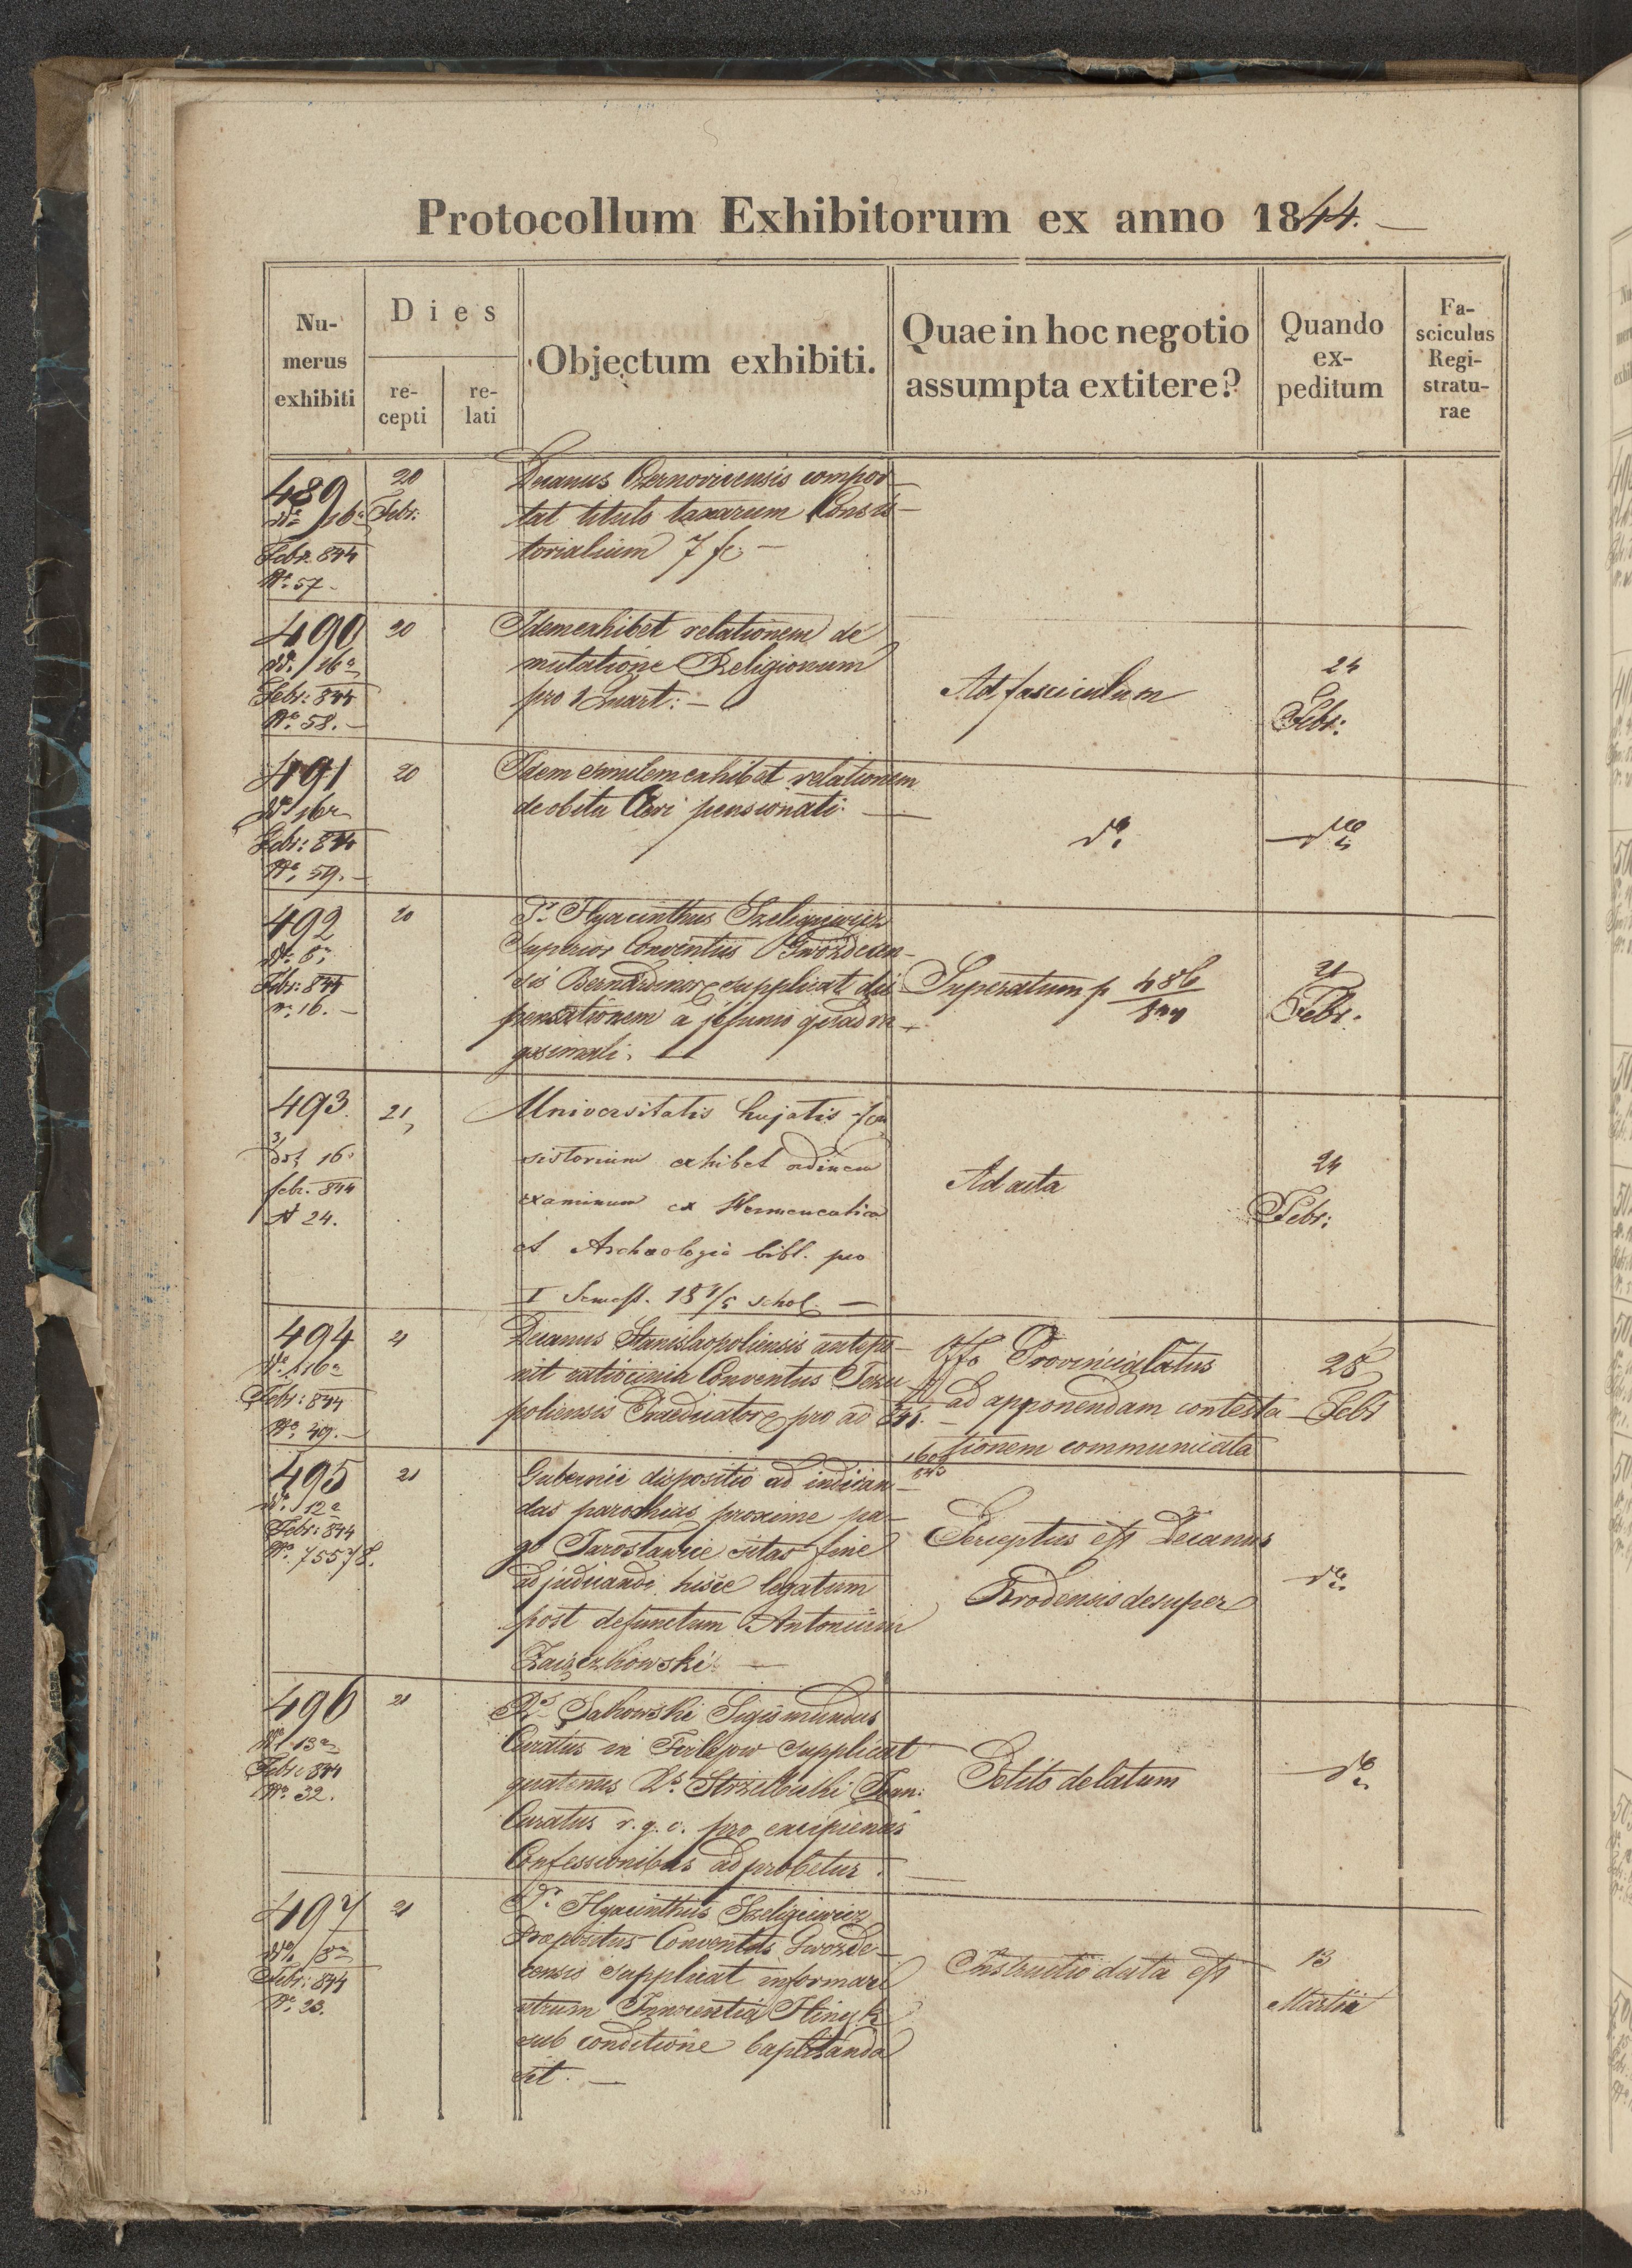 Protocollum Exhibitorum ex anno 1844.
Nu-
merus
exhibiti
Dies
re-
cepti
re-
lati
Objectum exhibiti.
Quae in hoc negotio
assumpta extitere?
Quando
ex-
peditum
Fa-
sciculus
Regi-
stratu-
rae
489
16
Febr. 844
No. 57
20
Febr:
Decanus Czernovicensis compor-
tat titulo taxarum Consis-
torialium 7 fr
490
16a
Febr: 844
No. 58.
20
Idem exhibet relationem de
mutatione Religionum
pro 1 Quart:
Ad fasciculum
24
Febr:
491
16a
Febr: 844
No. 59.
20
Idem similem exhibet relationem
de obitu Cleri pensionati.
do
do
492
Febr: 844
n. 16.
20
Pr. Hyacinthus Szeligiewicz
Superior Conventus Gwozdecen-
sis Bernardinor supplicat dis-
pensationem a jejunio quadra-
gesimali.
Superatum p 486/844
21
Febr.
493
16
febr. 844
N 24.
21
Universitatis hujatis Con
sistorium exhibet ordinem
examinum ex Hermeneutica
et Archaeologia bibl. pro
I Semest. schol.
Ad acta
24
Febr:
494
16a
Febr: 844
No. 49.
21
Decanus Stanislaopoliensis antepo-
nit ratiocinia Conventus Jezu
poliensis Praedicator pro
Offo Provincialatus
ad apponendam contesta-
tionem communicata
28
Febr
495
12a
Febr: 844
No. 75578.
21
Gubernii dispositio ad indican-
das parochias proxime pa-
go Jaroslawice sitas fine
adjudicandi hisce legatum
post defunctum Antonium
Zawiszkowski
Perceptus est Decanus
Brodensis desuper
do
496
13a
Febr: 844
No. 32.
21
Rs. Sakowski Sigismundus
Curatus in Firlejow supplicat
quatenus Rs. Strzelbicki Joan:
Curatus r.g.c. pro excipiendis
Confessionibus adprobetur.
Petito delatum
do
497
Febr: 844
No. 23.
21
Pr. Hyacinthus Szeligiewicz
Praepositus Conventus Gwozde-
censis supplicat informari
utrum Innocentia Hinyk
sub conditione baptisanda
sit.
Instructio data est
13
Martii